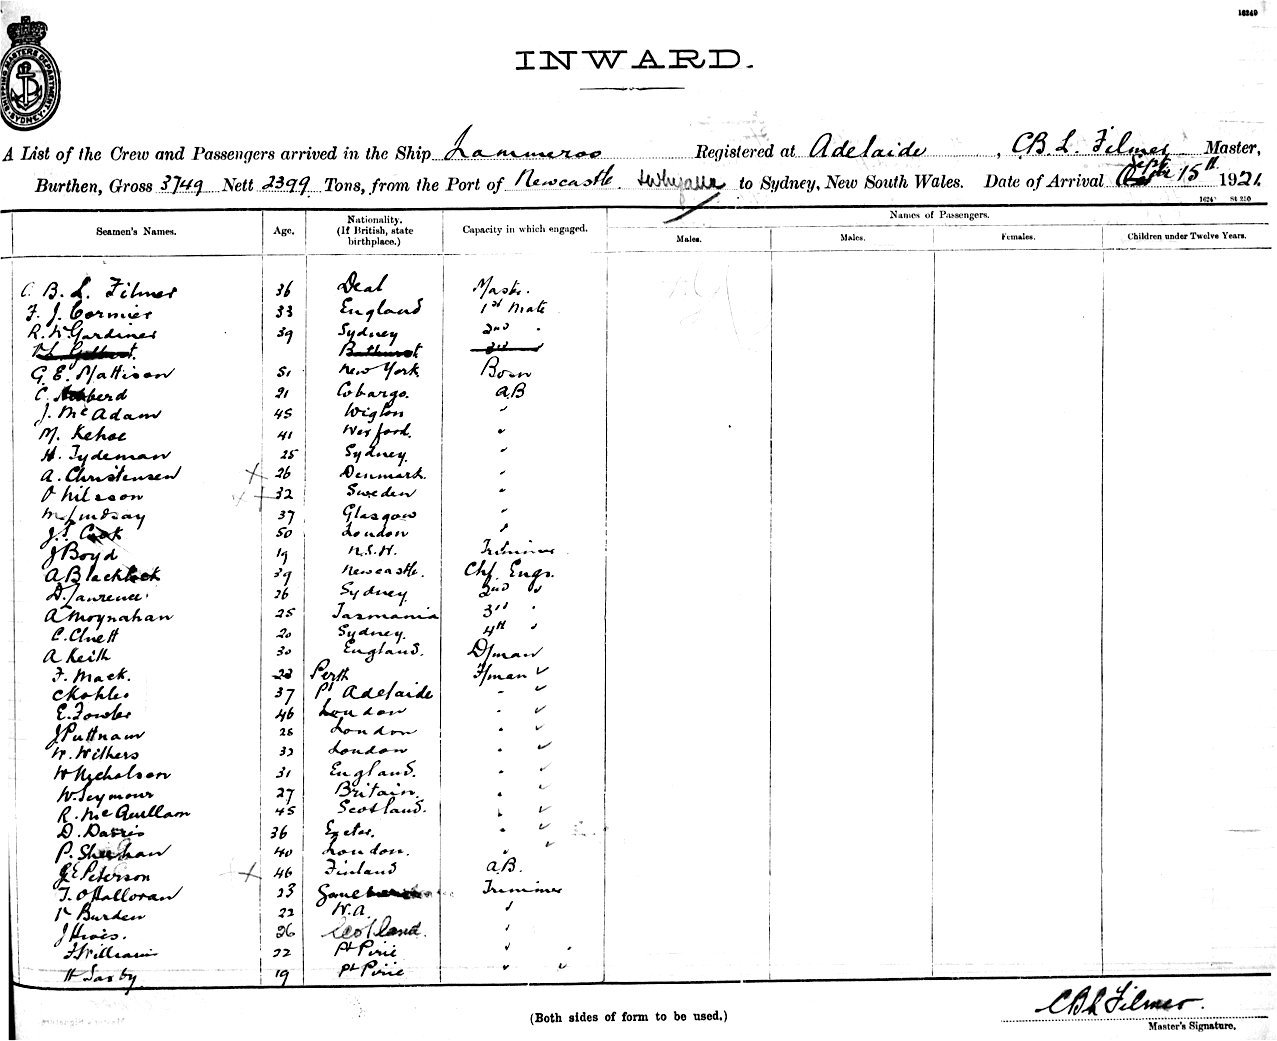 16240
SHIPPING MASTERS DEPARTMENT SYDNEY
INWARD.
A List of the Crew and Passengers arrived in the Ship Lammeroo Registered at Adelaide, C B L. Filmer Master,
Burthen, Gross 3749 Nett 2399 Tons, from the Port of Newcastle. to Sydney, New South Wales. Date of Arrival Septbr 15th 1921.
1624 St 210
Seamen's Names. Age. Nationality. (If British, state birthplace.) Capacity in which engaged. Names of Passengers.
Males. Males. Females. Children under Twelve Years.
C. B. L. Filmer 36 Deal Mastr.
F. J. Cormier 33 England 1st Mate
R. W. Gardiner 39 Sydney 2nd "
Bathurst 3rd
G. E. Mattison 51 New York Bosn
C. 21 Cobargo. A.B
J. McAdam 45 Wigton "
M. Kehoe 41 Wexford. "
H. Tydeman 25 Sydney. "
A. Christensen 26 Denmark. "
O Nilsson 32 Sweden "
M Lindsay 37 Glasgow "
J. S. Cook 50 London "
J Boyd 19 N.S.W. Trimmer
A Blacklock 39 Newcastle. Chf. Engr.
D. Lawrence 26 Sydney 2nd "
A Moynahan 25 Tasmania 3rd "
C. Cluett 20 Sydney. 4th "
A Keith 30 England. D/man
F. Mack. 22 Perth F/man
C Kohler 37 Pt Adelaide "
E. Fowler 46 London "
J Puttnam 28 London "
W. Withers 32 London "
W Nicholson 31 England. "
W. Seymour 27 Britain. "
R. McQuillam 45 Scotland. "
D. Davis 36 Exeter. "
P. Sheehan 40 London. "
G E Peterson 46 Finland A.B.
T. O'Halloran 23 Trimmer
Burden 22 W.A. "
J 26 Scotland. "
F Williams 22 Pt Pirie "
H Saxby 19 Pt Pirie "
(Both sides of form to be used.)
C B L Filmer.
Master's Signature.